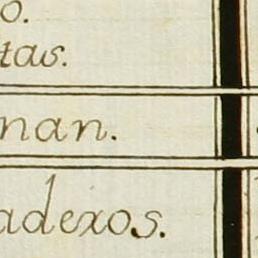 o.
tas.
nan.
adexos.